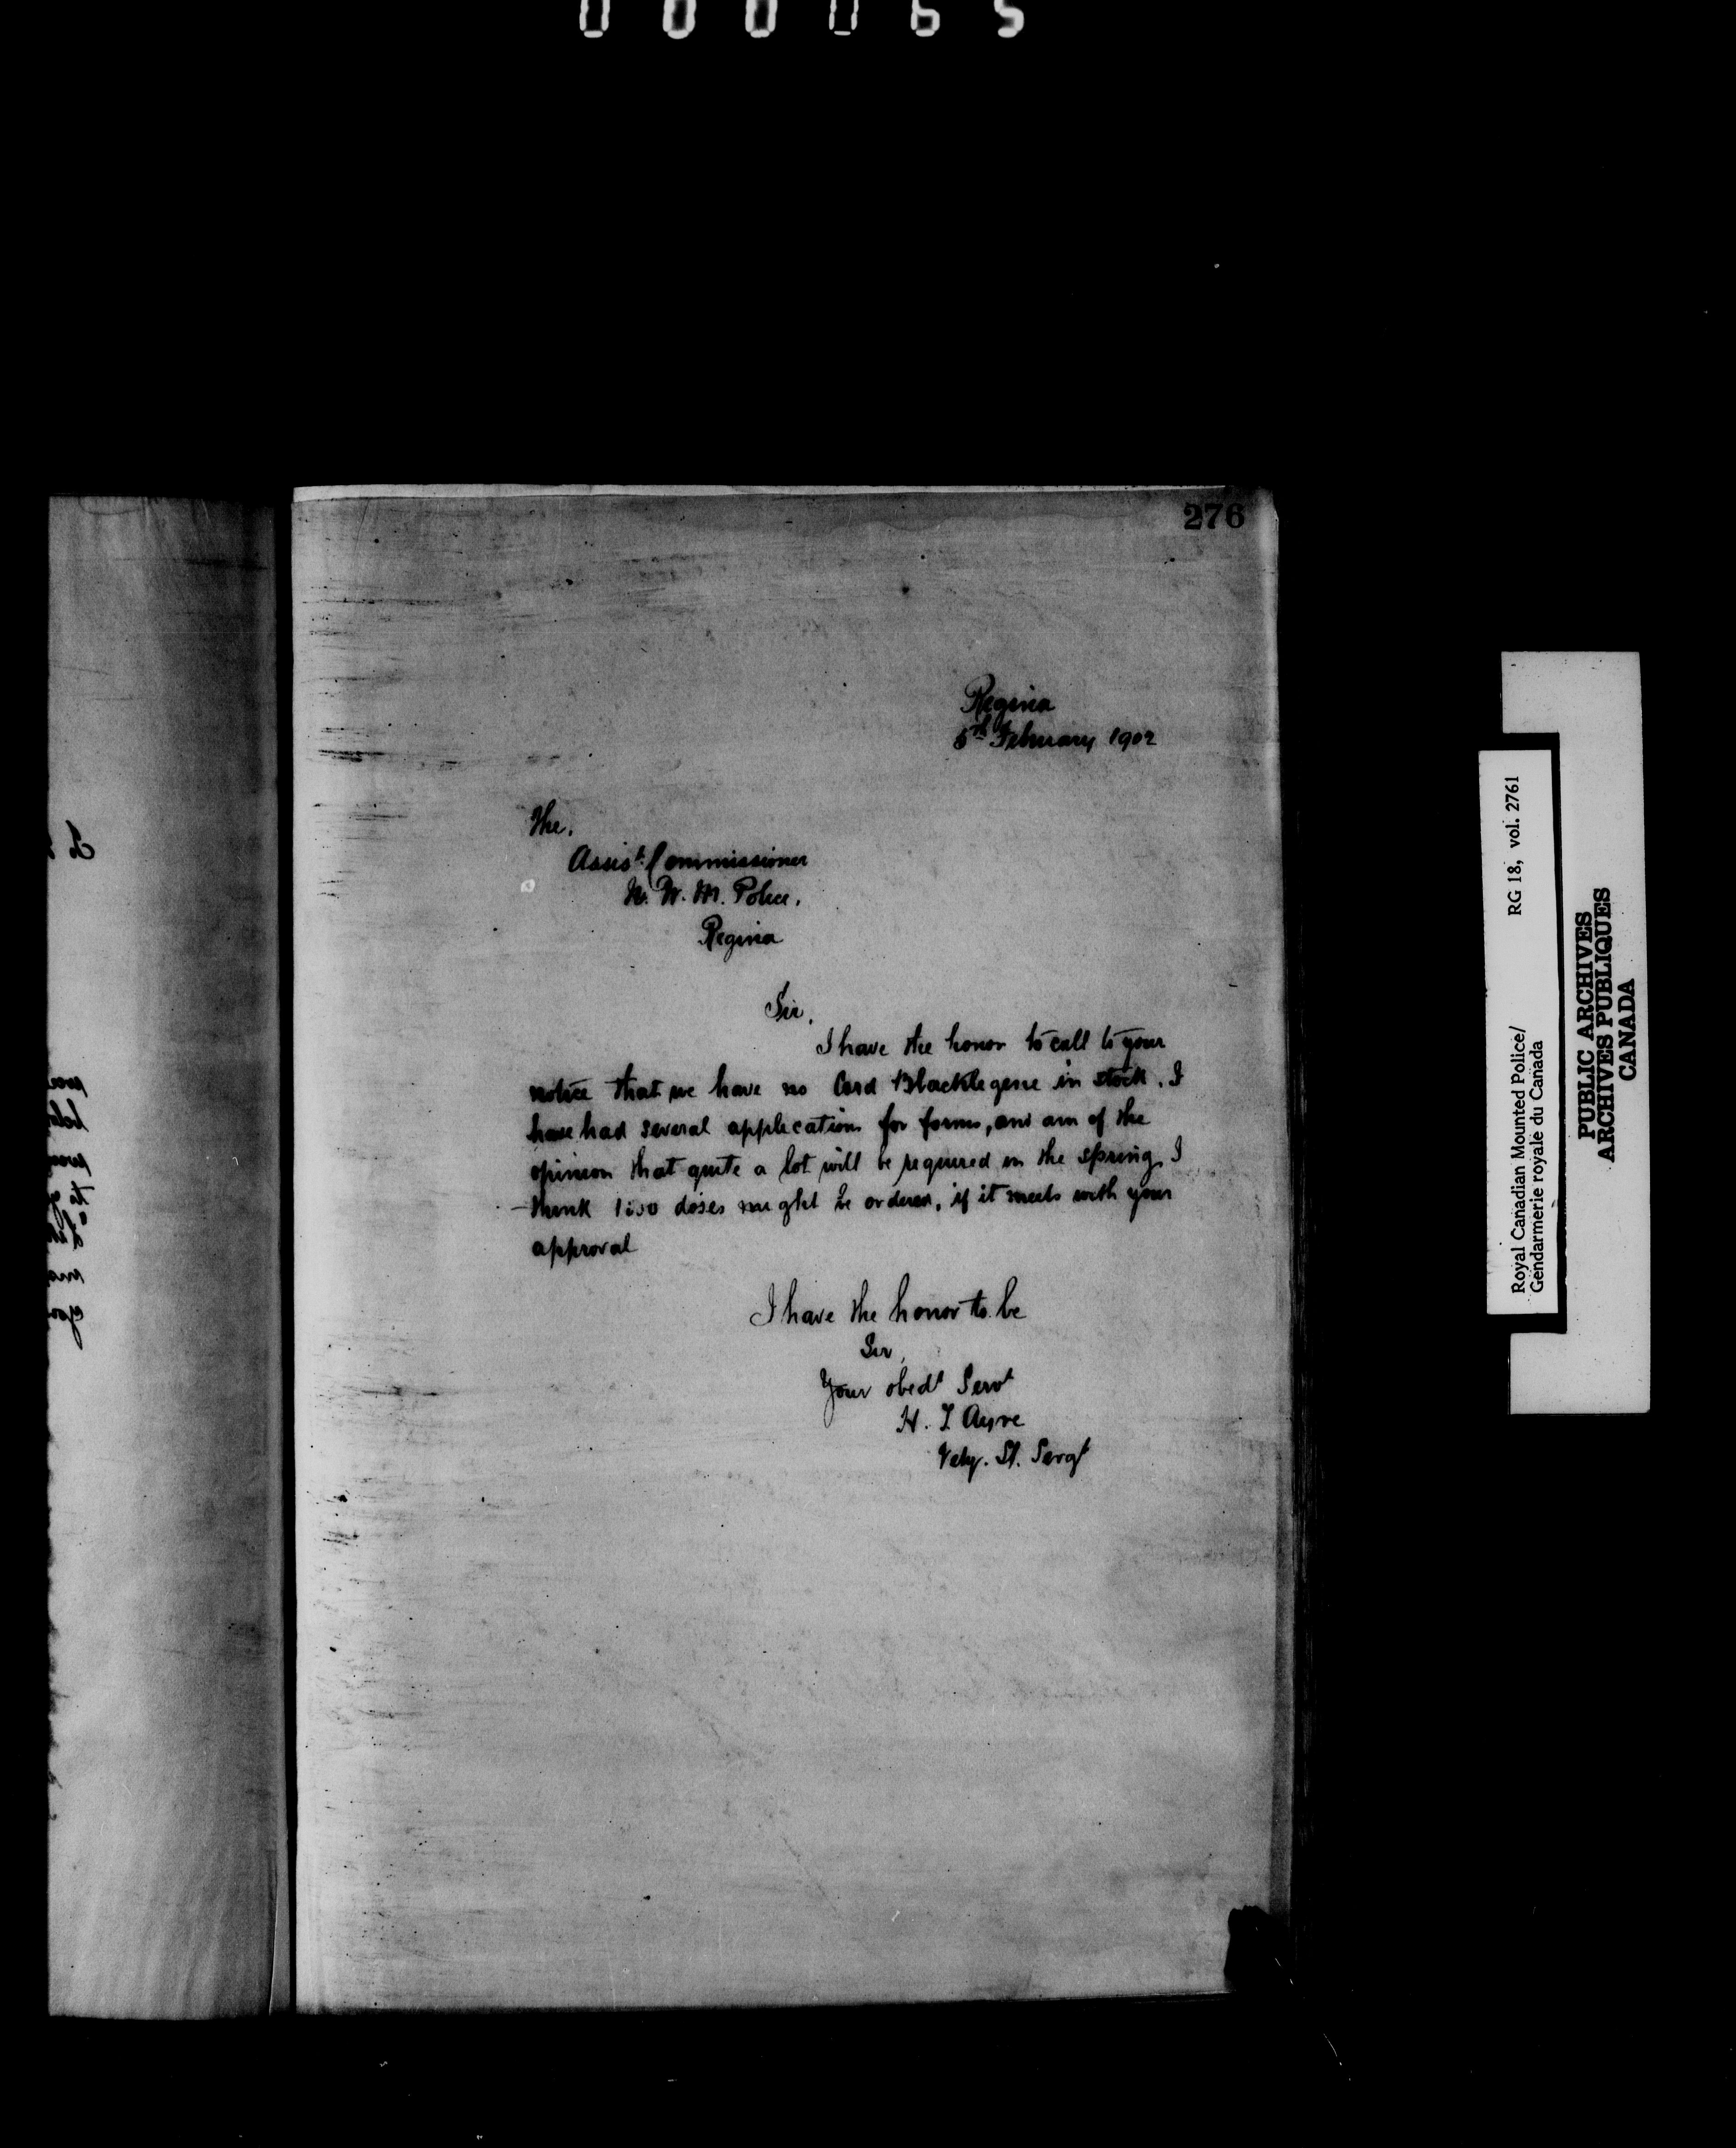 000065
276
Regina
5th February 1902
The,
Assist. Commissioner
N. W. M. Police,
Regina
Sir,
I have the honor to call to your
notice that we have no Cord Blacklegine in stock. I
have had several applications for forms, and am of the
opinion that quite a lot will be required in the spring. I
think 1000 doses might be ordered, if it meets with your
approval
I have the honor to be
Sir,
Your obedt Servt
H. T. Ayre
Vety. St. Sergt
Royal Canadian Mounted Police/ RG 18, vol. 2761
Gendarmerie royale du Canada
PUBLIC ARCHIVES
ARCHIVES PUBLIQUES
CANADA